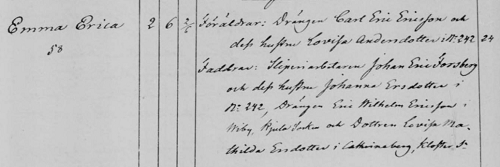 Emma Erica 2 6 2/5 Föräldrar: Drängen Carl Eric Ericsson och
58 dess hustru Lovisa Andersdotter i N:o 242 24
Faddrar: Sliperiarbetaren Johan Eric Forsberg
och dess hustru Johanna Ersdotter i
N:o 242, Drängen Eric Wilhelm Ericsson i
Wiby, Kjula Socken och Dottren Lovisa Ma-
thilda Ersdotter i Cathrineberg, Kloster, S:n